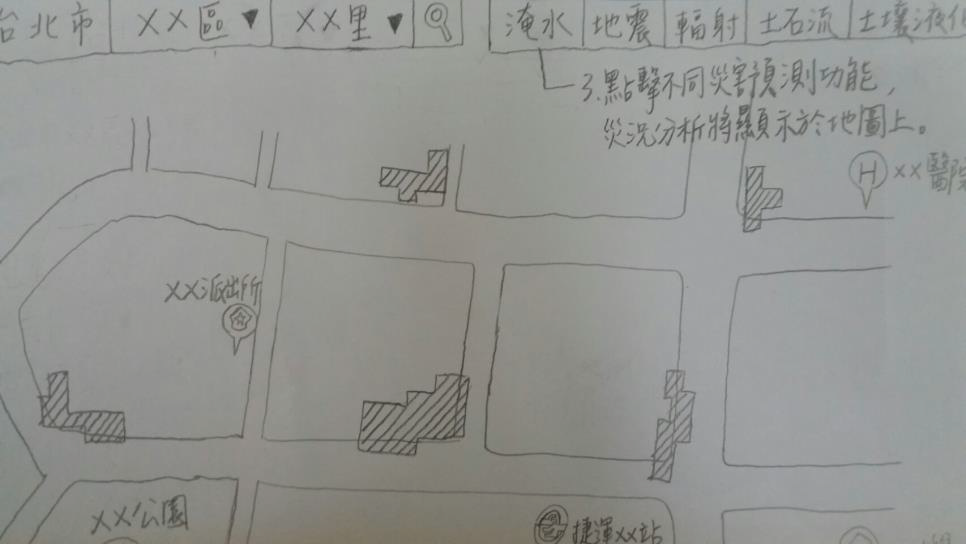 台北市 XX區▼ XX里▼ 淹水 地震 輻射 土石流 土壤液化
3.點擊不同災害預測功能，
災況分析將顯示於地圖上。
H XX醫院
XX派出所
XX公園
捷運XX站